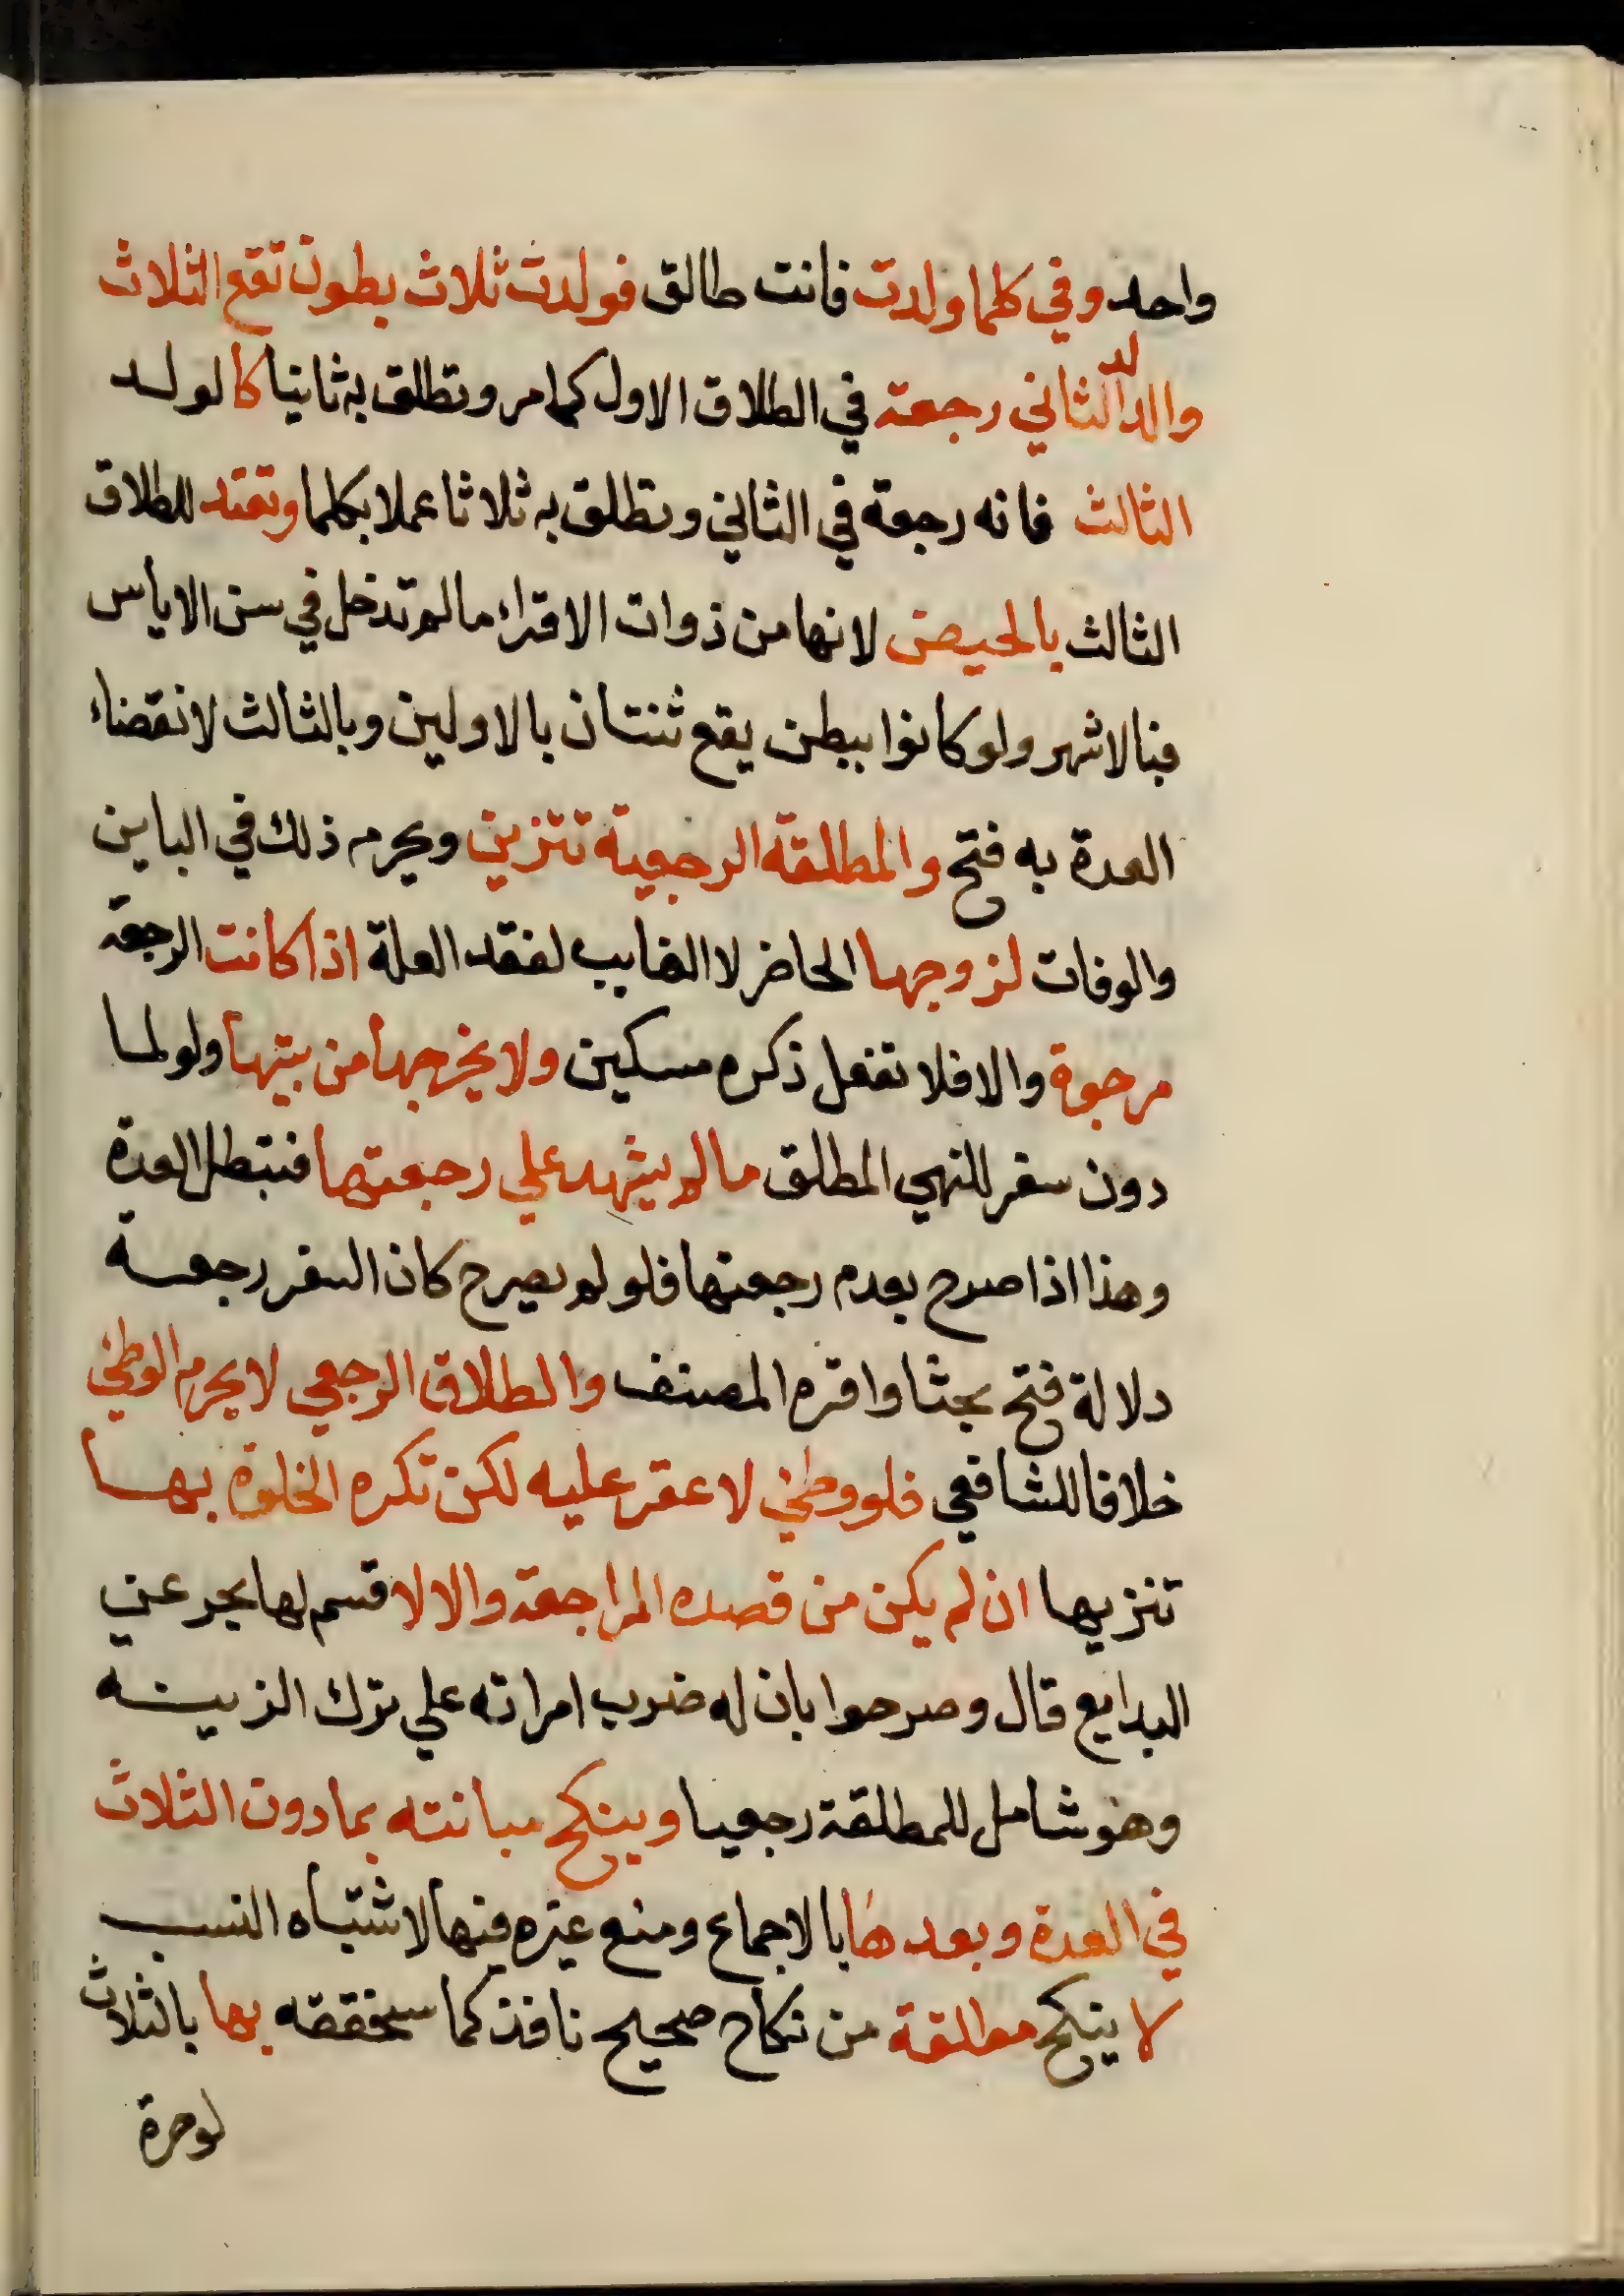 واحد وفي كلما ولدت فانت طالق فولدت ثلاث بطون تقع الثلاث
والد لد الثاني رجعة في الطلاق الاول كما مر وتطلق به ثانيا كالولد
الثالث فانه رجعة في الثاني وتطلق به ثلاثا عملا بكلما وتعتد للطلاق
الثالث بالحيض لانها من ذوات الاقراء ما لم تدخل في سن الاياس
فبالاشهر ولو كانوا ببطن يقع ثنتان بالاولين وبالثالث لانقضاء
العدة به فتح والمطلقة الرجعية تتزين ويحرم ذلك في الباين
والوفات لزوجها الحاضر لا الغايب لفقد العلة اذا كانت الرجعة
مرجوة والا فلا تفعل ذكره مسكين ولا يخرجها من بيتها ولو لما
دون سفر للنهي المطلق ما لم يشهد علي رجعتها فتبطل العدة
وهذا اذا صرح بعدم رجعتها فلو لم يصرح كان السفر رجعة
دلالة فتح بحثا واقره المصنف والطلاق الرجعي لا يحرم الوطئ
خلافا للشافعي فلو وطئ لا عقر عليه لكن تكره الخلوة بها
تنزيها ان لم يكن من قصده المراجعة والا لا قسم لها بحر عن
البدايع قال وصرحوا بان له ضرب امراته علي ترك الزينه
وهو شامل للمطلقة رجعيا وينكح مبانته بما دون الثلاث
في العدة وبعدها بالاجماع ومنع غيره فيها لاشتباه النسب
لا ينكح مطلقة من نكاح صحيح نافذ كما سنحققه بها بالثلاث
لو حرة